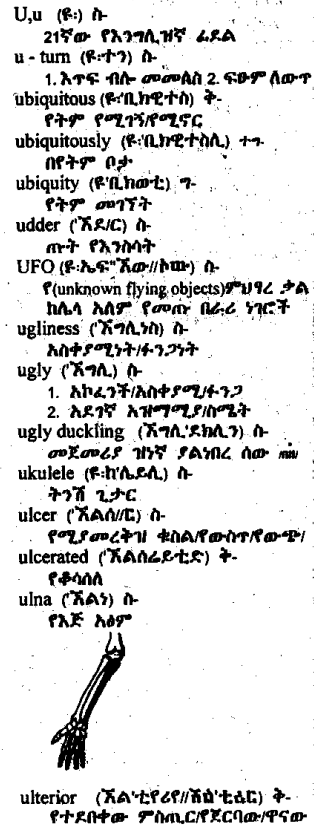 U,u (ዩ፡) ስ-
21ኛው የእንግሊዝኛ ፊደል
u - turn (ዩ፡ተን) ስ-
1. እጥፍ ብሎ መመለስ 2. ፍፁም ለውጥ
ubiquitous (ዩ'ቢክዊተስ) ቅ-
የትም የሚገኝ/የሚኖር
ubiquitously (ዩ፡'ቢክዊተስሊ) ተግ-
በየትም ቦታ
ubiquity (ዩ'ቢክወቲ) ግ-
የትም መገኘት
udder ('ኧደ/ር) ስ-
ጡት የእንስሳት
UFO (ዩ፡ኤፍ''ኧው//ኦው) ስ-
የ(unknown flying objects)ምህፃረ ቃል
ከሌላ አለም የመጡ በራሪ ነገሮች
ugliness ('ኧግሊነስ) ስ-
አስቀያሚነት/ፉንጋነት
ugly ('ኧግሊ) ስ-
1. አኮፈንች/አስቀያሚ/ፉንጋ
2. አደገኛ አዝማሚያ/ስሜት
ugly duckling (ኧግሊ'ደክሊን) ስ-
መጀመሪያ ዝነኛ ያልነበረ ሰው
ukulele (ዩ፡ከ'ሌይሊ) ስ-
ትንሽ ጊታር
ulcer ('ኧልሰ//ር) ስ-
የሚያመረቅዝ ቁስል/የውስጥ/የውጭ/
ulcerated ('ኧልሰሬይቲድ) ቅ-
የቆሳሰለ
ulna ('ኧልነ) ስ-
የእጅ አፅም
ulterior ቅ-
የተደበቀው ምስጢር/የጀርባው/ዋናው